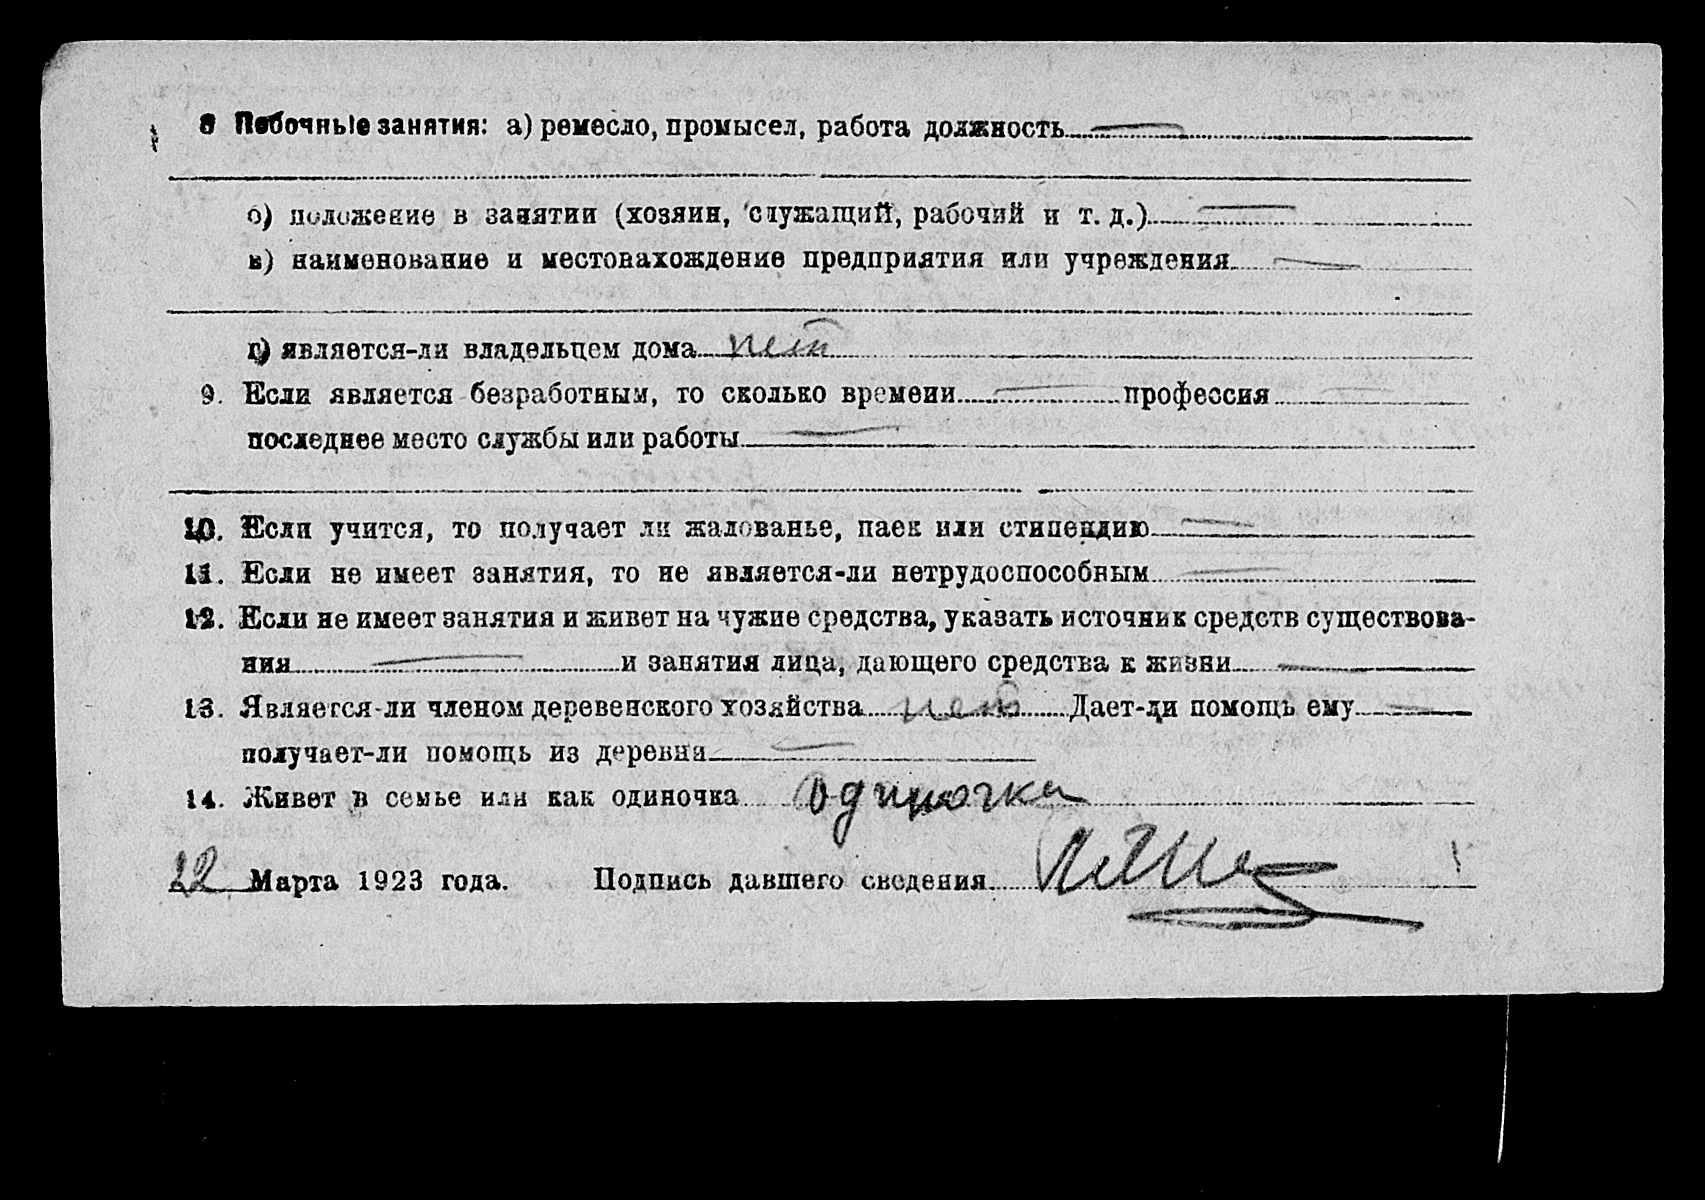 8 Побочные занятия: а) ремесло, промысел, работа должность —
б) положение в занятии (хозяин, служащий, рабочий и т. д.) —
в) наименование и местонахождение предприятия или учреждения —
г) является-ли владельцем дома нет
9. Если является безработным, то сколько времени — профессия —
последнее место службы или работы —
10. Если учится, то получает ли жалованье, паек или стипендию —
11. Если не имеет занятия, то не является-ли нетрудоспособным —
12. Если не имеет занятия и живет на чужие средства, указать источник средств существова-
ния — и занятия лица, дающего средства к жизни —
13. Является-ли членом деревенского хозяйства нет Дает-ли помощь ему —
получает-ли помощь из деревни —
14. Живет в семье или как одиночка одиночка
22 Марта 1923 года. Подпись давшего сведения